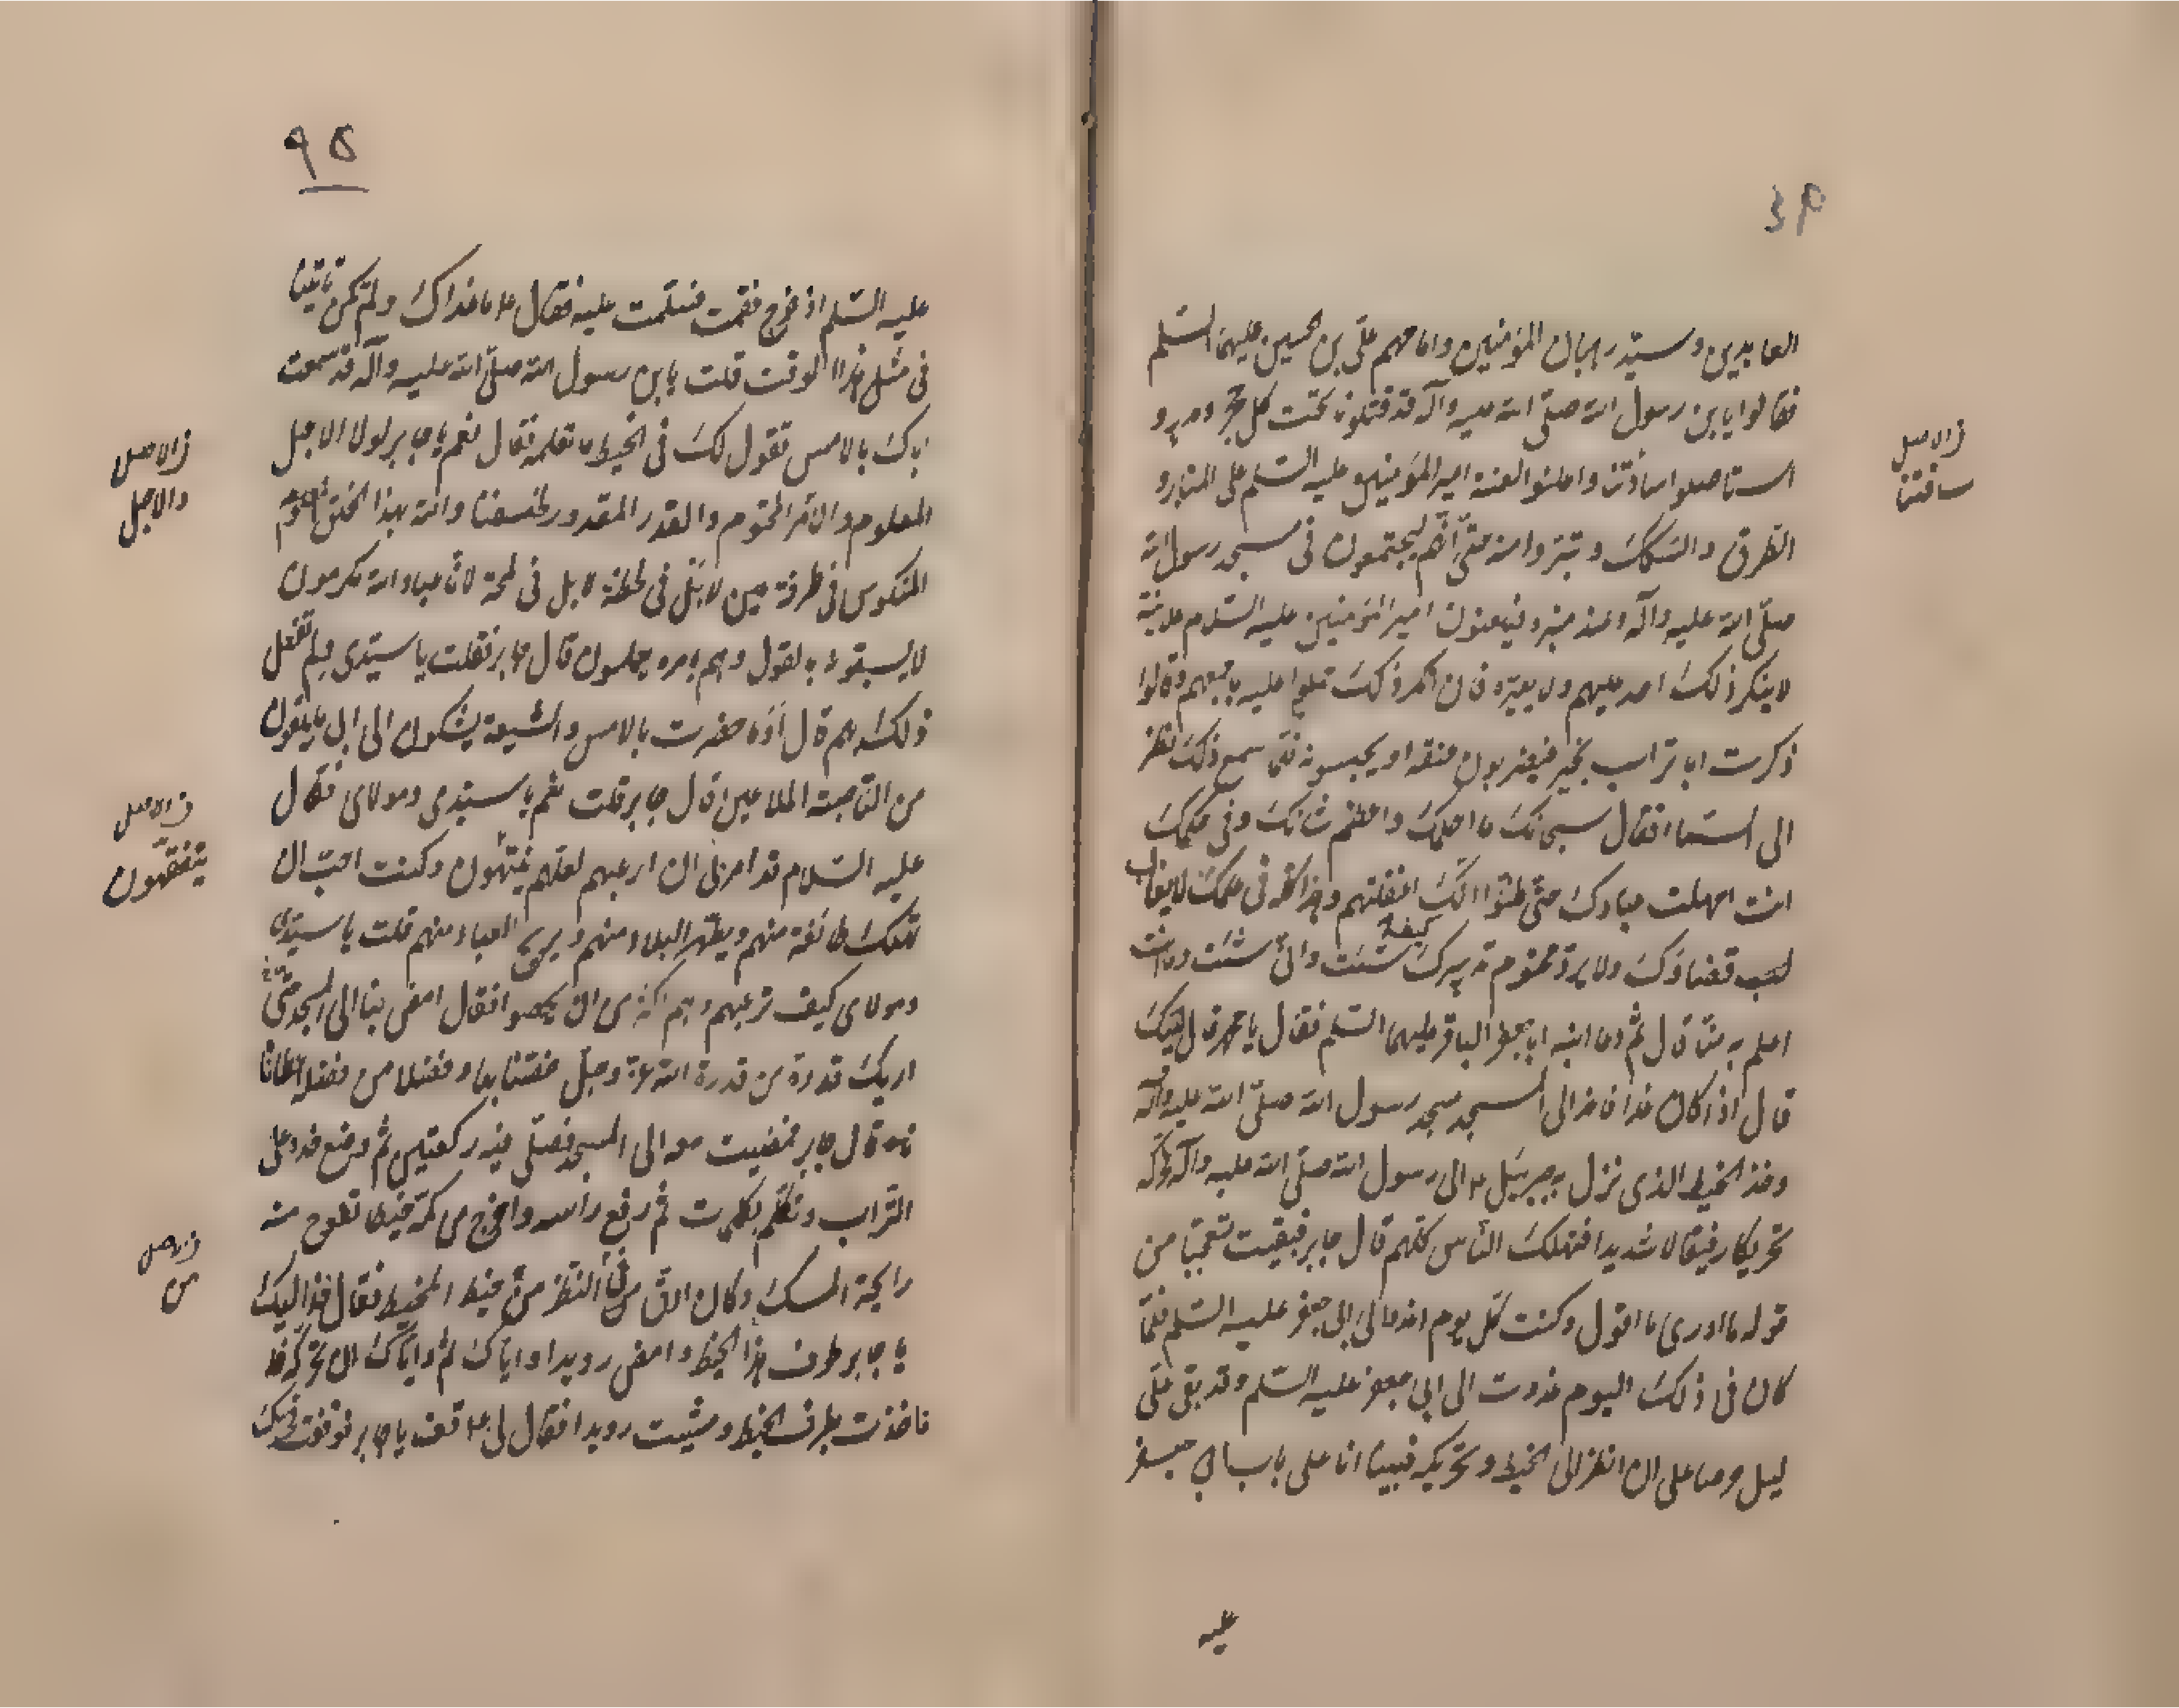 العابدين و سيّد رهبان المؤمنين وامامهم علىّ بن الحسين عليهما السّلم
فقالوا يابن رسول الله صلّى الله عليه وآله قد قتلونا تحت كل حجر ومدر و
استاصلوا سافتنا واعلنوا لعنة امير المؤمنين عليه السّلم على المنابر و
الطّرق والسّكك و تبرّوا منه حتّى انّهم ليجتمعون فى مسجد رسول الله
صلّى الله عليه وآله وعند منبره فيلعنون امير المؤمنين عليه السّلام علانية
لا ينكر ذلك احد عليهم ولا يغيّره فان انكر ذلك حملوا عليه باجمعهم وقالوا
ذكرت ابا تراب بخير فيضربون عنقه او يحبسونه فلمّا سمع ذلك نظر
الى السّماء فقال سبحانك ما احلمك واعظم شانك وفى حكمك
انت امهلت عبادك حتّى ظنّوا انّك اغفلتهم وهذا كلّه فى علمك لا يغالب
قضاؤك ولا يردّ محتوم تدبيرك كيف شئت وانّى شئت وانت
اعلم به منّا قال ثم دعا ابنه ابا جعفر الباقر عليهما السّلم فقال يا محمد قال لبيك
قال اذا كان غدا فاغد الى المسجد مسجد رسول الله صلّى الله عليه وآله
وخذ الخيط الذى نزل به جبرئيل ع الى رسول الله صلّى الله عليه وآله فحركه
تحريكا رفيقا لا شديدا فتهلك النّاس كلّهم قال جابر فبقيت تعجّبا من
قوله ما ادرى ما اقول وكنت كلّ يوم اغدو الى ابى جعفر عليه السّلم فلمّا
كان فى ذلك اليوم غدوت الى ابى جعفر عليه السّلم وقد بقى علىّ
ليل حرصا على ان انظر الى الخيط و تحريكه فبينا انا على باب ابى جعفر
عليه
فى الاصل
سافتنا
٩٥
عليه السّلم اذ خرج فقمت فسلّمت عليه فقال ع ما غداك ولم تكن تاتينا
فى مثل هذا الوقت قلت يابن رسول الله صلّى الله عليه وآله قد سمعت
اباك بالامس تقول لك فى الخيط ما تعلمه فقال نعم يا جابر لولا الاجل
المعلوم والامر المحتوم والقدر المقدور لخسفنا والله بهذا الخلق
المنكوس فى طرفة عين لا بل فى لحظة لا بل فى لمحة لانّا عباد الله مكرمون
لا يسبقونه بالقول وهم بامره يعملون قال جابر فقلت يا سيّدى ولم تفعل
ذلك بهم قال او ما حضرت بالامس والشيعة يشكون الى ابى ما يلقون
من النّاصبة الملاعين قال جابر قلت نعم يا سيّدى ومولاى فقال
عليه السّلام قد امرنى ان ارعبهم لعلّهم ينتهون وكنت احبّ ان
تهلك طائفة منهم ويطهر البلاد منهم ويريح العباد منهم قلت يا سيّدى
ومولاى كيف ترعبهم وهم اكثر من ان يحصوا فقال امض بنا الى المسجد حتّى
اريك قدرة من قدرة الله عزّ وجلّ خصّنا بها وفضلا من فضله اعطانا
قال جابر فمضيت معه الى المسجد فصلّى فيه ركعتين ثم وضع خده على
التّراب وتكلّم بكلمات ثم رفع راسه واخرج من كمّه خيطا تفوح منه
رايحة المسك وكان ادقّ فى النّظر من خيط المخيط فقال خذ اليك
يا جابر طرف هذا الخيط وامض رويدا واياك ثم واياك ان تحركه
فاخذت طرف الخيط ومشيت رويدا فقال لى ع قف يا جابر فوقفت
فى الاصل
والاجل
فى الاصل
يتفقّهون
فى الاصل
من